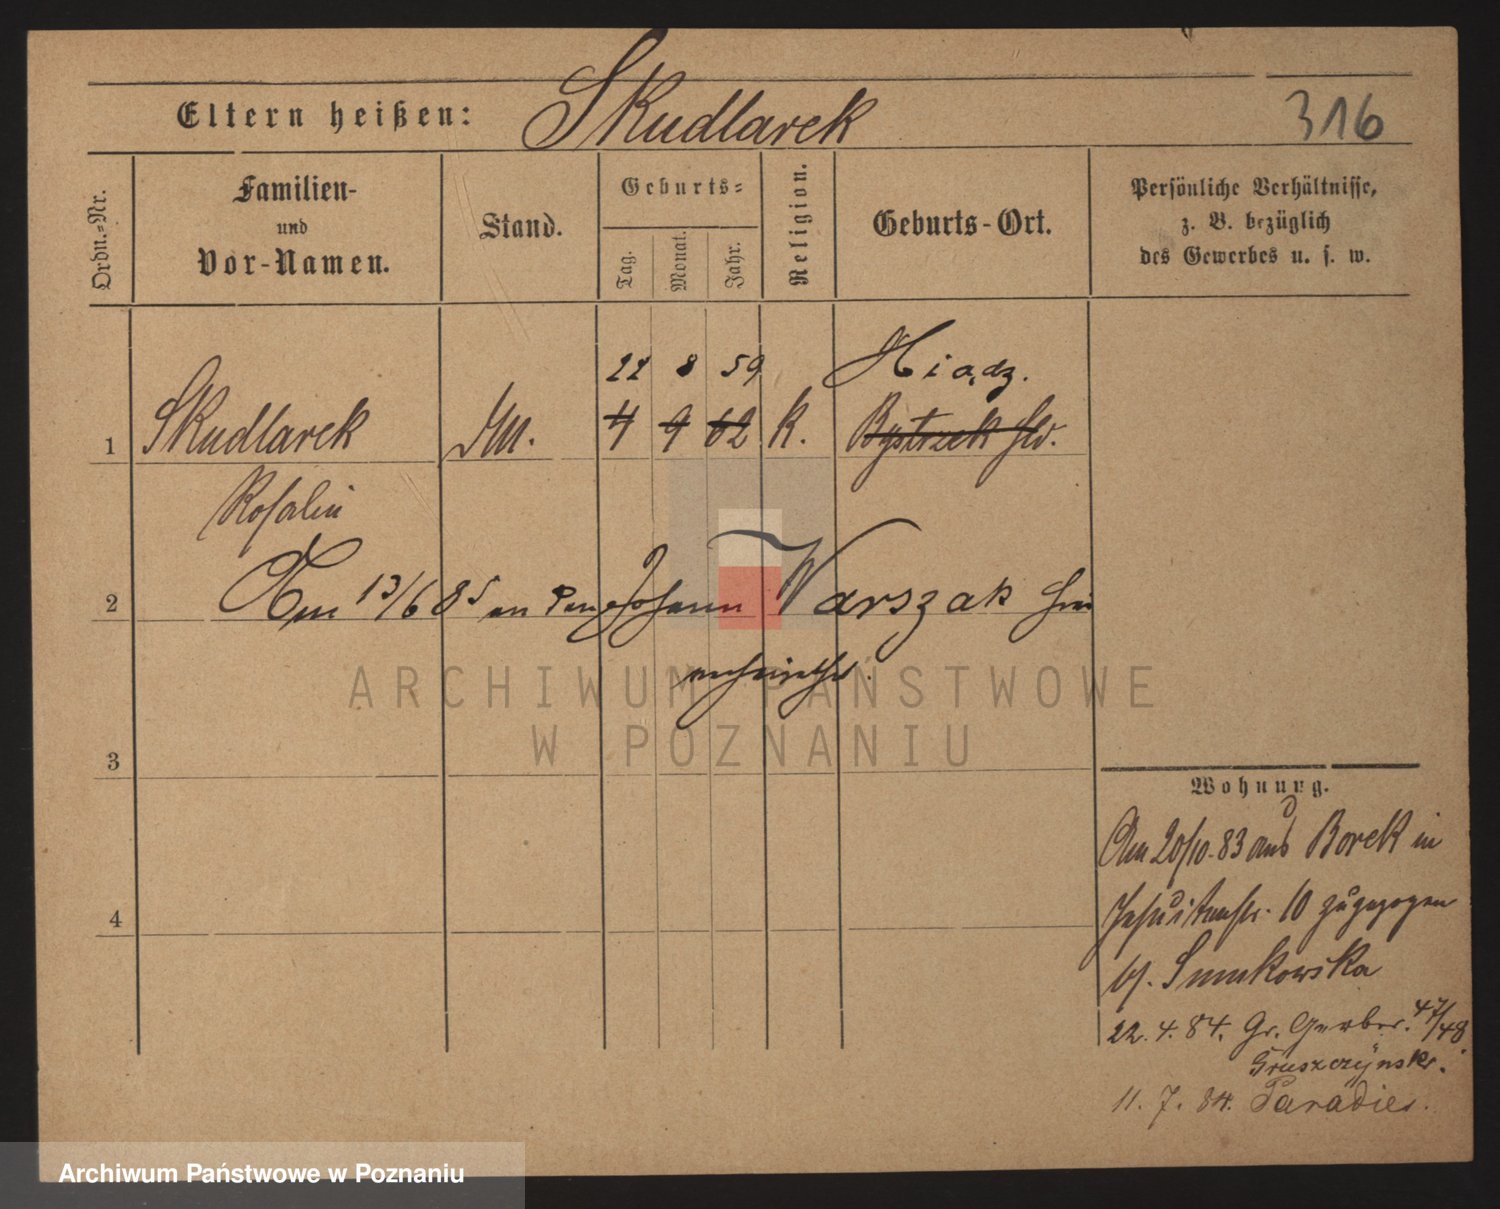 Eltern heißen: Skudlarek 316
Ordn.-Nr.
Familien-
und
Vor-Namen.
Stand.
Geburts-
Tag. Monat. Jahr.
Religion.
Geburts-Ort.
Persönliche Verhältnisse,
z. B. bezüglich
des Gewerbes u. s. w.
22 8 59 Hiadz.
1 Skudlarek M. 4 9 62 K. Bystrzek
Rosalin
2 Am 13/6 85 an Johann Warszak hier
verheirathet.
ARCHIWUM PAŃSTWOWE
W POZNANIU
3
Wohnung.
Am 20/10. 83 aus Borek in
4 Jesuitenstr. 10 zugezogen
b/. Smukowska
22. 4. 84. Gr. Gerber. 47/48
Gruszczynski.
11. 7. 84. Paradies.
Archiwum Państwowe w Poznaniu